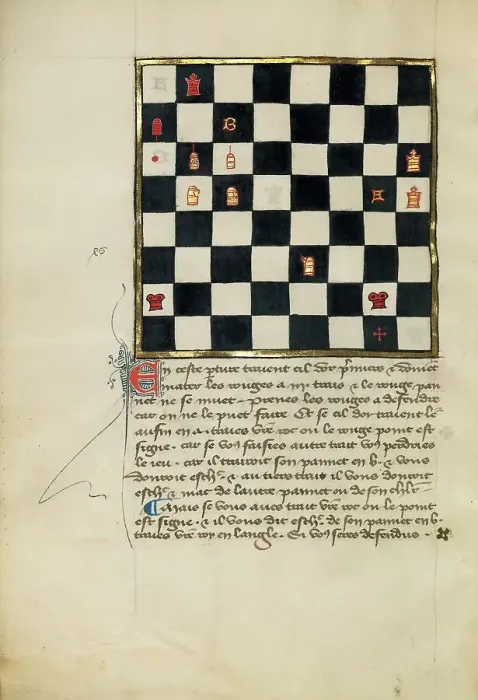 B
En ceste pture traient cil dor pmiers & doiuet
mater les rouges a iiij trais & le rouge pan
net ne se muet · prenes les rouges a defendre
car on ne le puet faire Et se cil dor traient le
aufin en a · traies vre roc ou le rouge point est
signe · car se vo9 faisies autre trait vo9 perdries
le ieu · car il trairoit son pannet en b · & vous
donroit esch & au tiers trait il vous donroit
esch & mat de lautre pannet ou de son chlr
Mais se vous aues trait vre roc ou le point
est signe · & il vous dit esch de son pannet en b ·
traies vre roy en langle · Si vo9 seres defendus ·